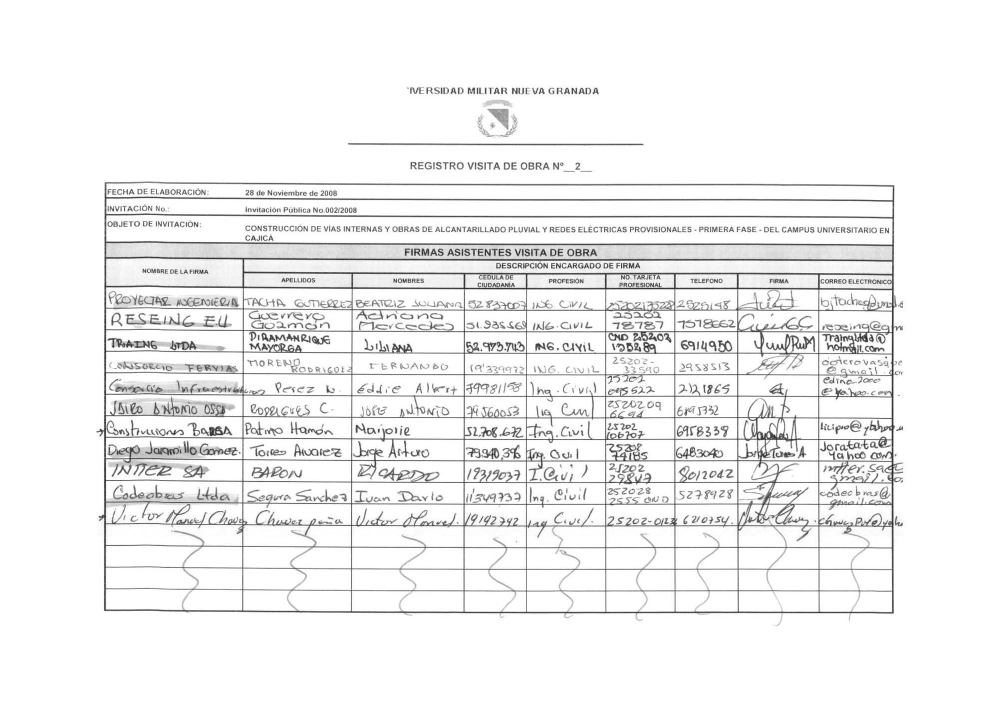 IVERSIDAD MILITAR NUEVA GRANADA
REGISTRO VISITA DE OBRA Nº__2__
FECHA DE ELABORACIÓN: 28 de Noviembre de 2008
INVITACIÓN No.: Invitación Pública No.002/2008
OBJETO DE INVITACIÓN: CONSTRUCCIÓN DE VÍAS INTERNAS Y OBRAS DE ALCANTARILLADO PLUVIAL Y REDES ELÉCTRICAS PROVISIONALES - PRIMERA FASE - DEL CAMPUS UNIVERSITARIO EN
CAJICÁ
FIRMAS ASISTENTES VISITA DE OBRA
NOMBRE DE LA FIRMA DESCRIPCIÓN ENCARGADO DE FIRMA
APELLIDOS NOMBRES CEDULA DE CIUDADANÍA PROFESIÓN NO. TARJETA PROFESIONAL TELEFONO FIRMA CORREO ELECTRONICO
PROYECTAR INGENIERIA TACHA GUTIERREZ BEATRIZ JULIANA 52.837007 ING CIVIL 2525148
RESEING EU Guerrero Guzmán Adriana Mercedes 51.935.569 ING. CIVIL 25202 78787 7578662 reseing@gm
TRAING LTDA DIRAMANRIQUE MAYORGA LILIANA 52.973.743 ING. CIVIL CND 25202 135289 6914950 Traingltda@ hotmail.com
CONSORCIO FERVIAS MORENO RODRIGUEZ FERNANDO ING. CIVIL 25202- 33590 2958513
Consorcio Infraestructuras Perez N. Eddie Albert 79981158 Ing. Civil 25202 2121865 edina2000 @yahoo.com.
JAIRO ANTONIO OSSA RODRIGUES C. JOSE ANTONIO 79.560053 Ing Civil 2520209 6694
Construcciones BARSA Patino Hamón Marjorie 52.708.672 Ing. Civil 25202 106707 6958338
Diego Jaramillo Gomez. Torres Alvarez Jorge Arturo Ing. Civil 25208 6483040 Jorge Torres A Joratata@ yahoo com.
INTER SA BARON RICARDO 19319037 I. Civil 25202 29847 8012042
Codeobras Ltda Segura Sanchez Ivan Dario 11349737 Ing. Civil 252028 2555 CND 5278928 codeobras@ gmail.com
Victor Manuel Chavez Chavez peña Victor Manuel. 19142742 ing Civil. 6210754.